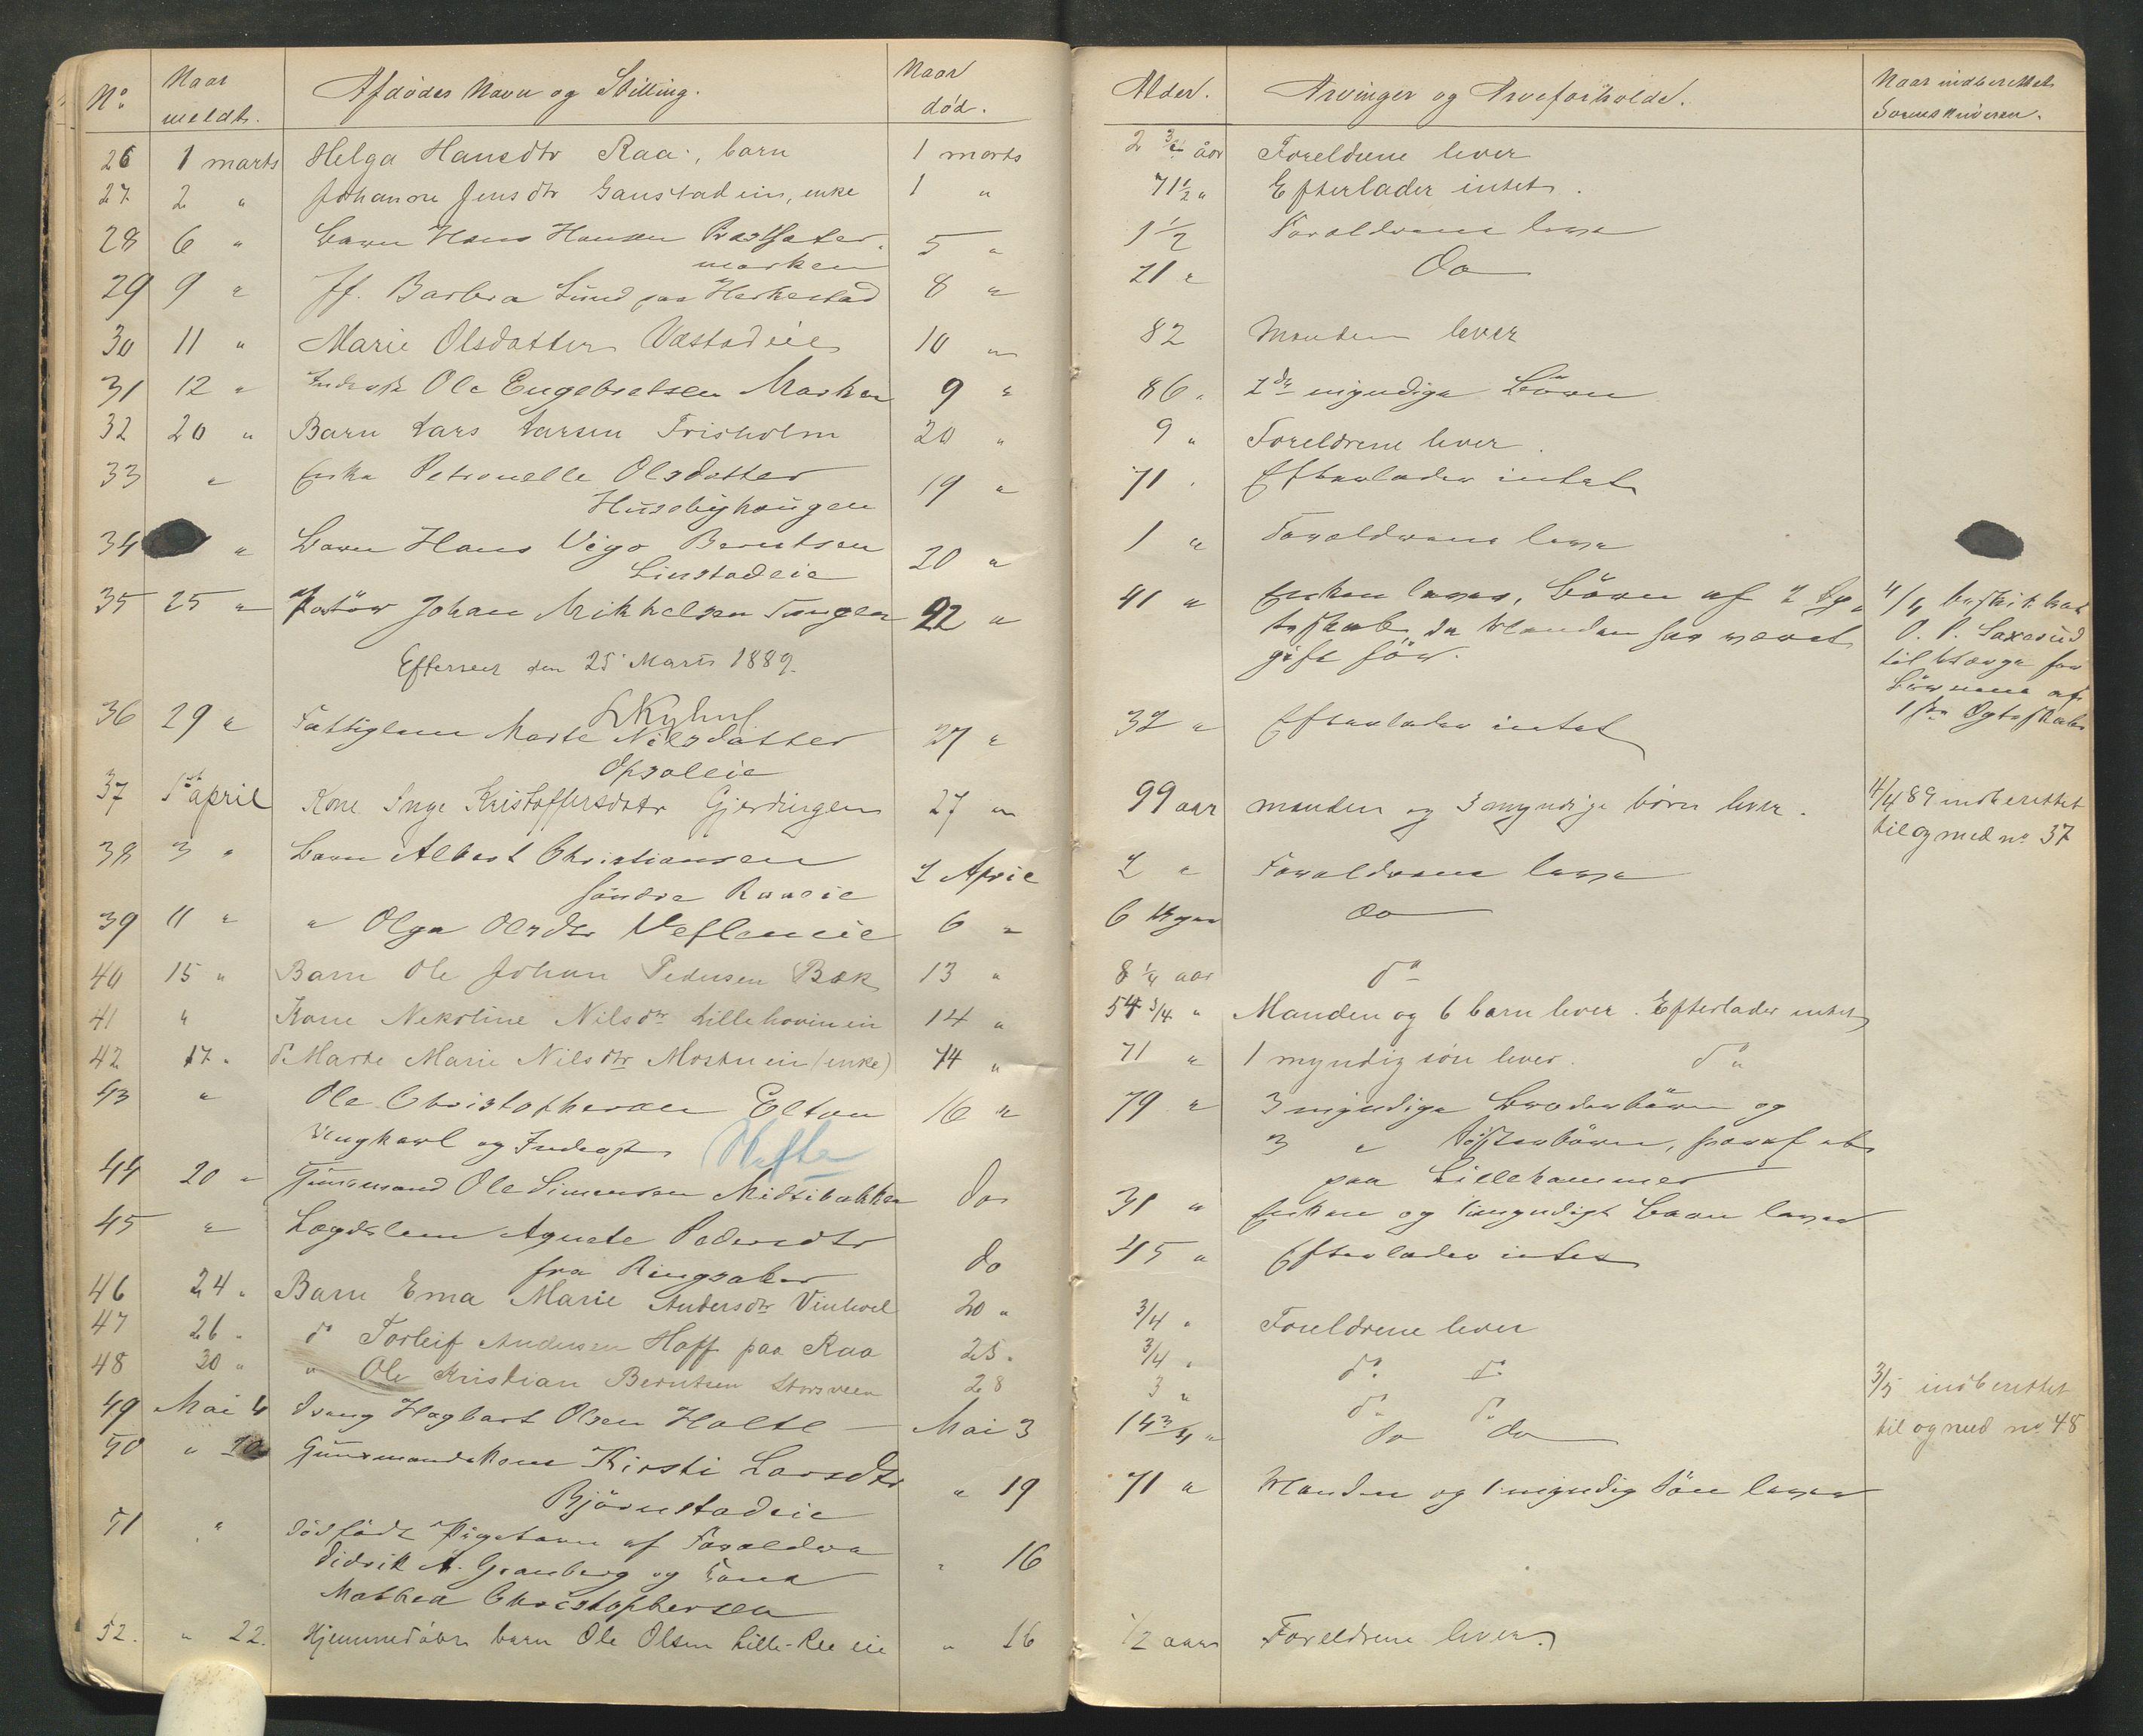 No Naar meldt. Afdødes Navn og Stilling. Naar død. Alder. Arvinger og Arveforholde. Naar indberettet Sorenskriveren.
26 1 marts Helga Hansdtr Raa, barn 1 marts 2 3/4 aar Foreldrene lever
27 2 " Johanne Jensdtr Ganstadeie, enke 1 " 71 1/2 " Efterlader intet.
28 6 " Barn Hans Hansen 5 " 1 1/2 Forældrene leve
marken
29 9 " Jf. Barbra Lund paa Herkestad 8 " 21 " Do
30 11 " Marie Olsdatter Vestadeie 10 " 82 Manden lever
31 12 " Inderst Ole Engebretsen Marken 9 " 86 " 2de myndige Børn
32 20 " Barn Lars Larsen Frisholm 20 " 9 " Foreldrene lever.
33 " Enke Petronelle Olsdatter 19 " 71 " Efterlader intet
Husebyhaugen
34 " Barn Hans Vigo Berntsen 20 " 1 " Forældrene leve
Linstadeie
35 25 " Johan Mikkelsen Haugen 22 " 41 " Enken lever, Børn af 2 Ægteskab, da Manden har været gift før.
O. P. Saxerud
til Værge for
Børnene af
1ste Ægteskab
Efterseet den 25 Marts 1889.
36 29 " Fattiglem Marte Nilsdatter 27 " 32 " Efterlader intet
Opsaleie
37 1st april Kone Inge Kristoffersdatr Gjerdingen 27 " 99 aar manden og 3 myndige børn lever. 4/4 89 indberettet
til og med no 37
38 3 " Barn Albert Christiansen 2 April 2 " Forældrene leve
søndre Raaeie
39 11 " " Olga Olsdtr Vefleneie 6 " 6 Uger do
40 15 " Barn Ole Johan Pedersen Bæk 13 " 8 1/4 aar do
41 " Kone Nekoline Nilsdtr Lillehovineie 14 " 54 3/4 " Manden og 6 barn lever. Efterlader intet
42 17 " do Marte Marie Nilsdtr Mostueie (enke) 14 " 71 " 1 myndig søn lever. do
43 " Ole Christophersen Elton 16 " 79 " 3 myndige Broderbørn og
Ungkarl og Inderst Hefte 3 " Søsterbørn, hvoraf et
paa Lillehammer
44 20 " Huusmand Ole Simensen Midtibakken do 31 " Enken og 1 umyndigt Barn lever
45 " Lægdslem Agnete Pedersdtr do 45 " Efterlader intet
fra Ringsaker
46 24 " Barn Ema Marie Andersdtr Vinhvel 20 " 3/4 " Foreldrene lever
47 26 " do Torleif Andersen Hoff paa Raa 25 " 3/4 " do do
48 30 " " Ole Kristian Berntsen Storsveen 28 3 " do do 3/5 indberettet
til og med no 48
49 Mai 4 Dreng Hagbart Olsen Holte Mai 3 14 3/4 " do do
50 " 20 Huusmandskone Kirsti Larsdtr " 19 71 " Manden og 1 myndig Søn lever
Bjørnstadeie
51 " Dødfødt Pigebarn af Forældre " 16
Didrik A. Granberg og Kone
Mathea Christophersen
52. " 22. Hjemmedøbt barn Ole Olsen Lille-Ree eie " 16 1/2 aar Foreldrene lever